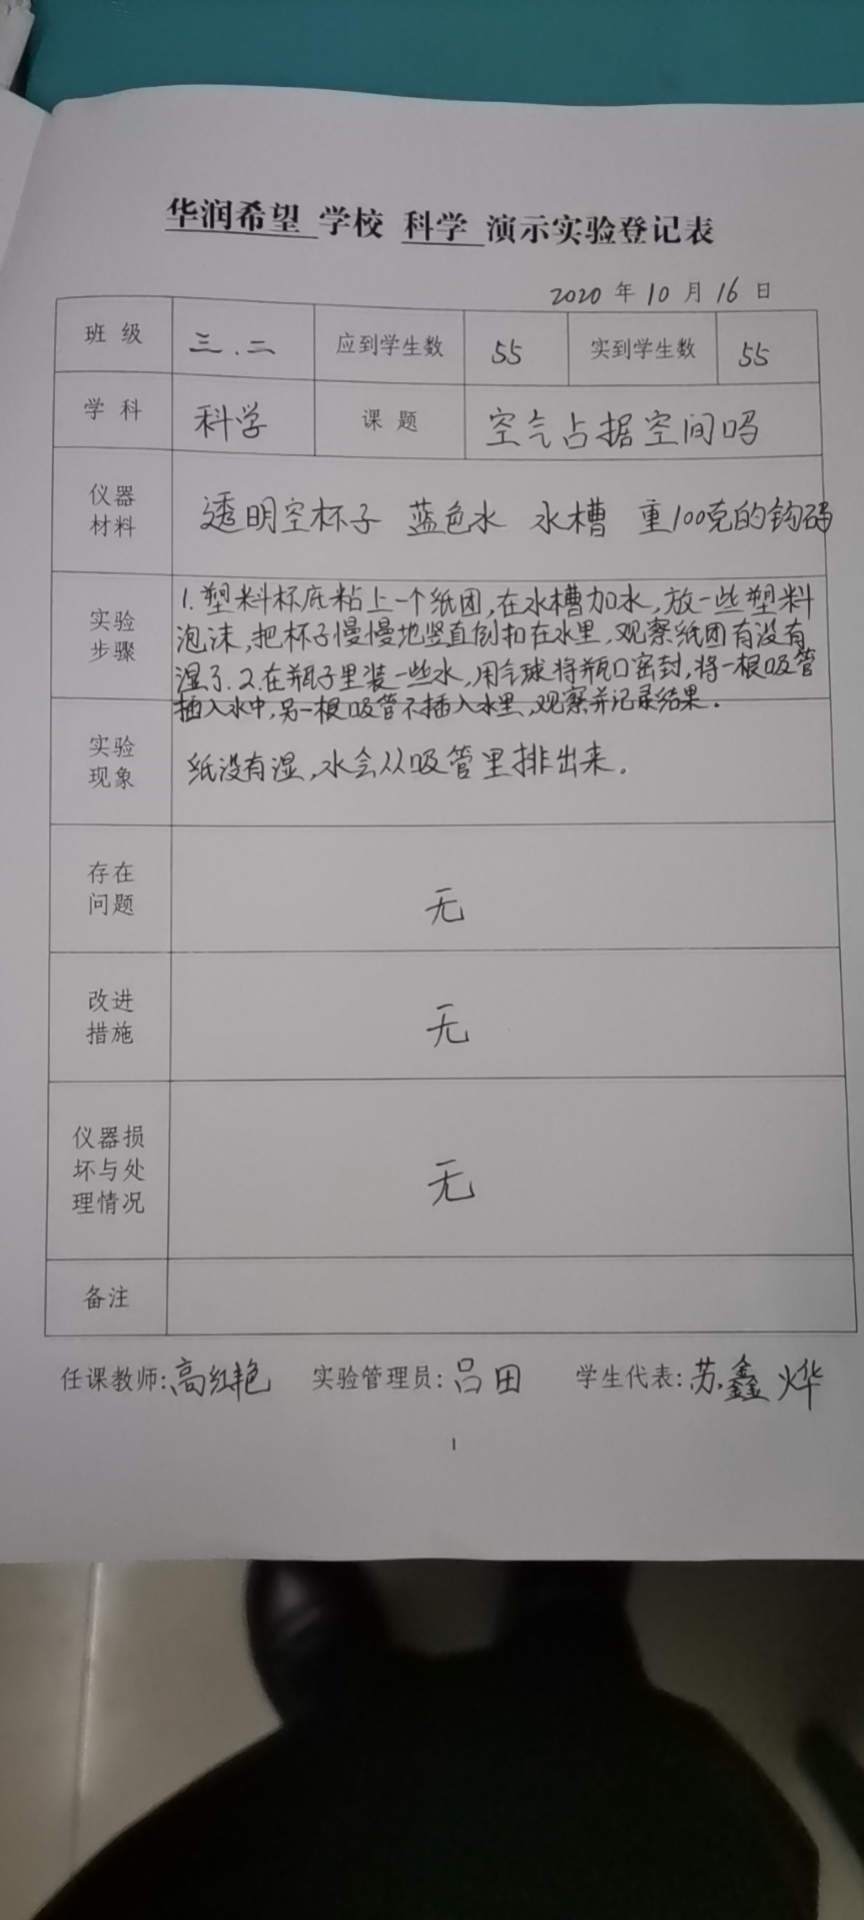 华润希望 学校 科学 演示实验登记表
2020 年 10 月 16 日
班 级 三.二 应到学生数 55 实到学生数 55
学 科 科学 课 题 空气占据空间吗
仪器
材料
透明空杯子 蓝色水 水槽 重100克的钩码
实验
步骤
1.塑料杯底粘上一个纸团,在水槽加水,放一些塑料
泡沫,把杯子慢慢地竖直倒扣在水里,观察纸团有没有
湿了.2.在瓶子里装一些水,用气球将瓶口密封,将一根吸管
插入水中,另一根吸管不插入水里,观察并记录结果.
实验
现象
纸没有湿,水会从吸管里排出来.
存在
问题
无
改进
措施
无
仪器损
坏与处
理情况
无
备注
任课教师:高红艳 实验管理员:吕田 学生代表:苏鑫烨
1